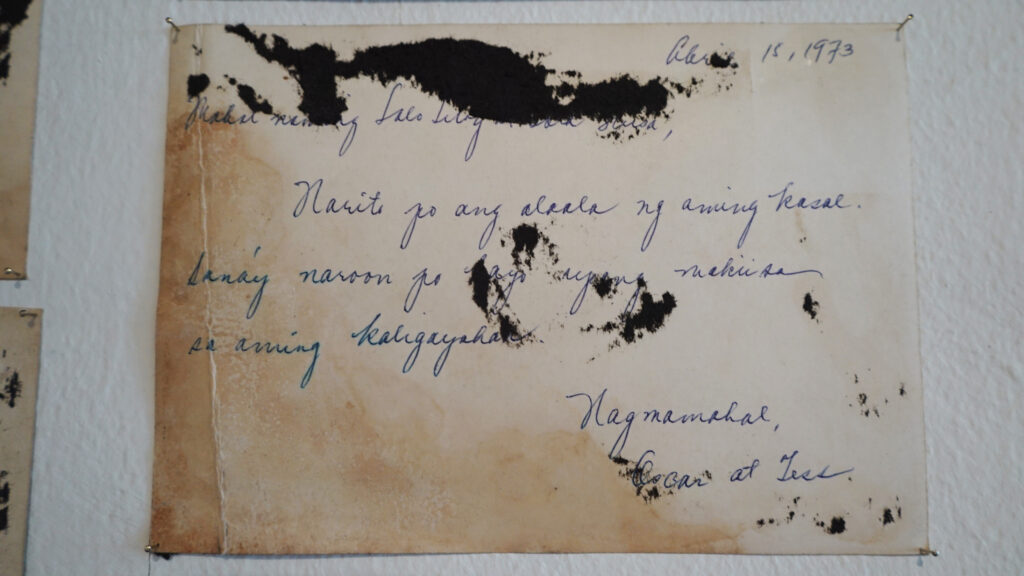 18, 1973
Mahal naming Lolo
Narito po ang alaala ng aming kasal.
Sana'y naroon po kayo upang makiisa
sa aming kaligayahan.
Nagmamahal,
Oscar at Tess.